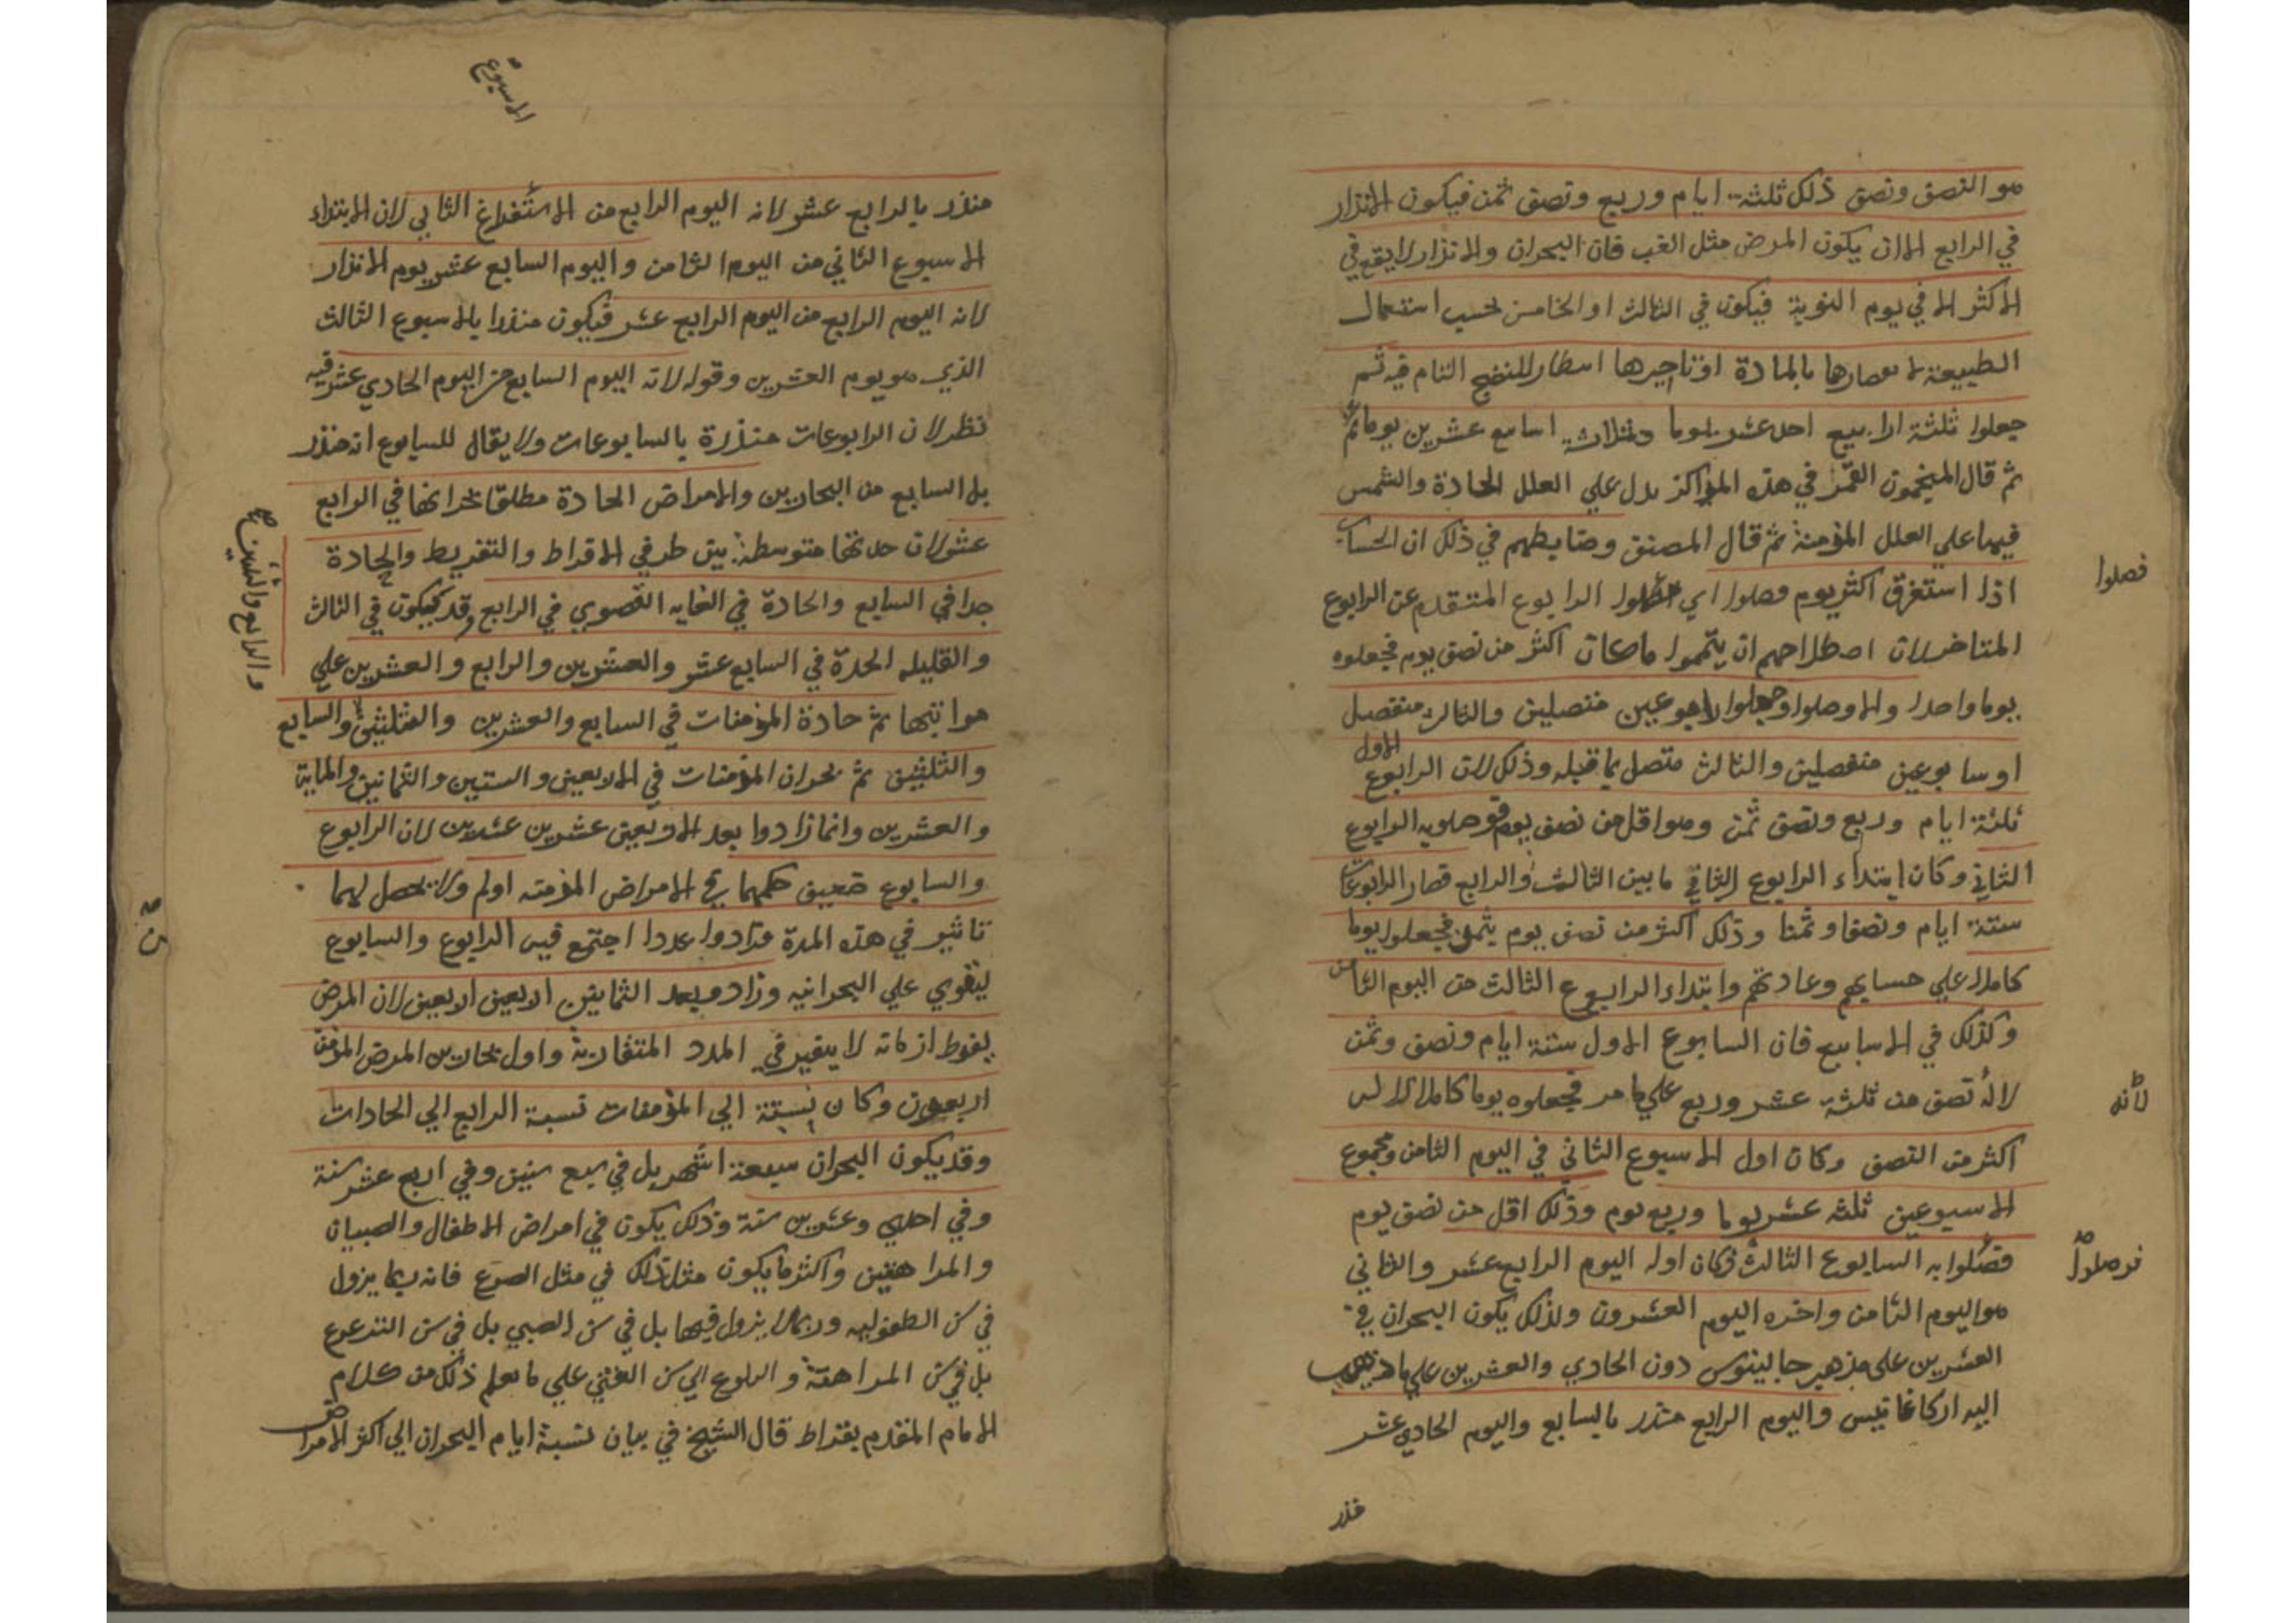 هو النصف ونصف ذلك ثلثة ايام وربع ونصف ثمن فيكون الانذار
في الرابع الا ان يكون المرض مثل الغب فان البحران والانذار لا يقع في
الاكثر الا في يوم النوبة فيكون في الثالث او الخامس بحسب استعمال
الطبيعة بالمادة او تاخيرها للنضج التام فيه ثم
جعلوا ثلثة ارابيع احد عشر يوما وثلاثة اسابيع عشرين يوما
ثم قال المنجمون القمر في هذه المراكز يدل علي العلل الحادة والشمس
فيها علي العلل المزمنة ثم قال المصنف وضابطهم في ذلك ان الحساب
اذا استغرق اكثر يوم فصلوا اي الرابوع المتقدم عن الرابوع
المتاخر لان اصطلاحهم ان يتمموا ما كان اكثر من نصف يوم فجعلوه
يوما واحدا والا وصلوا وجعلوا رابوعين متصلين والثالث منفصل
او سابوعين منفصلين والثالث متصل بما قبله وذلك لان الرابوع الاول
ثلثة ايام وربع ونصف ثمن وهو اقل من نصف يوم فوصلوا به الرابوع
الثاني وكان ابتداء الرابوع الثاني ما بين الثالث والرابع فصار الرابوعان
ستة ايام ونصفا وثمنا وذلك اكثر من نصف يوم بثمن فجعلوا يوما
كاملا علي حسابهم وعادتهم وابتداء الرابوع الثالث من اليوم الثامن
وكذلك في الاسابيع فان السابوع الاول ستة ايام ونصف وثمن
لانه نصف من ثلثة عشر وربع علي ما مر فجعلوه يوما كاملا لانه
اكثر من النصف وكان اول الاسبوع الثاني في اليوم الثامن ومجموع
الاسبوعين ثلثه عشر يوما وربع يوم وذلك اقل من نصف يوم
فصلوا به السابوع الثالث فكان اوله اليوم الرابع عشر والثاني
هو اليوم الثامن واخره اليوم العشرون ولذلك يكون البحران في
العشرين على مذهب جالينوس دون الحادي والعشرين علي ما ذهب
اليه اركاغانيس واليوم الرابع منذر بالسابع واليوم الحادي عشر
منذر
فصلوا
لانه
فوصلوا
الاسبوع
منذر بالرابع عشر لانه اليوم الرابع من الاستفراغ الثاني لان الابتداء
الاسبوع الثاني من اليوم الثامن واليوم السابع عشر يوم الانذار
لانه اليوم الرابع من اليوم الرابع عشر فيكون منذرا بالاسبوع الثالث
الذي هو يوم العشرين وقوله لانه اليوم السابع من اليوم الحادي عشر فيه
نظر لان الرابوعات منذرة بالسابوعات ولا يقال للسابوع انه منذر
بل السابع من البحارين والامراض الحادة مطلقا بحرانها في الرابع
عشر لان حدتها متوسطة بين طرفي الافراط والتفريط والحادة
جدا في السابع والحادة في الغايه القصوي في الرابع وقد يكون في الثالث
والقليله الحدة في السابع عشر والعشرين والرابع والعشرين علي
مراتبها ثم حادة المزمنات في السابع والعشرين والثلثين والسابع
والثلثين ثم بحران المزمنات في الاربعين والستين والثمانين والماية
والعشرين وانما زادوا بعد الاربعين عشرين عشرين لان الرابوع
والسابوع ضعيف حكمهما في الامراض المزمنه اولم ولا يحصل لهما
تاثير في هذه المدة فزادوا عددا اجتمع فيه الرابوع والسابوع
ليقوي علي البحرانيه وزادوا بعد الثمانين اربعين اربعين لان المرض
لفرط ازمانه لا يتغير في المدد المتقاربة واول بحارين المرض المزمن
اربعون وكان نسبته الي المزمنات نسبة الرابع الي الحادات
وقد يكون البحران سبعة اشهر بل في سبع سنين وفي اربع عشر سنة
وفي احدي وعشرين سنة وذلك يكون في امراض الاطفال والصبيان
والمراهقين واكثر ما يكون مثل ذلك في مثل الصرع فانه ربما يزول
في سن الطفوليه وربما لا يزول فيها بل في سن الصبي بل في سن الترعرع
بل في سن المراهقة والبلوغ الي سن الفتي علي ما يعلم ذلك من كلام
الامام المقدم بقراط قال الشيخ في بيان نسبة ايام البحران الي اكثر الامراض
والرابع والثلثين صح